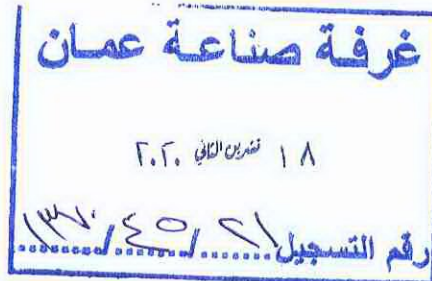 غرفة صناعة عمان
١٨ تشرين الثاني ٢٠٢٠
رقم التسجيل ٢١ / ٤٥ / ١٣٧٠